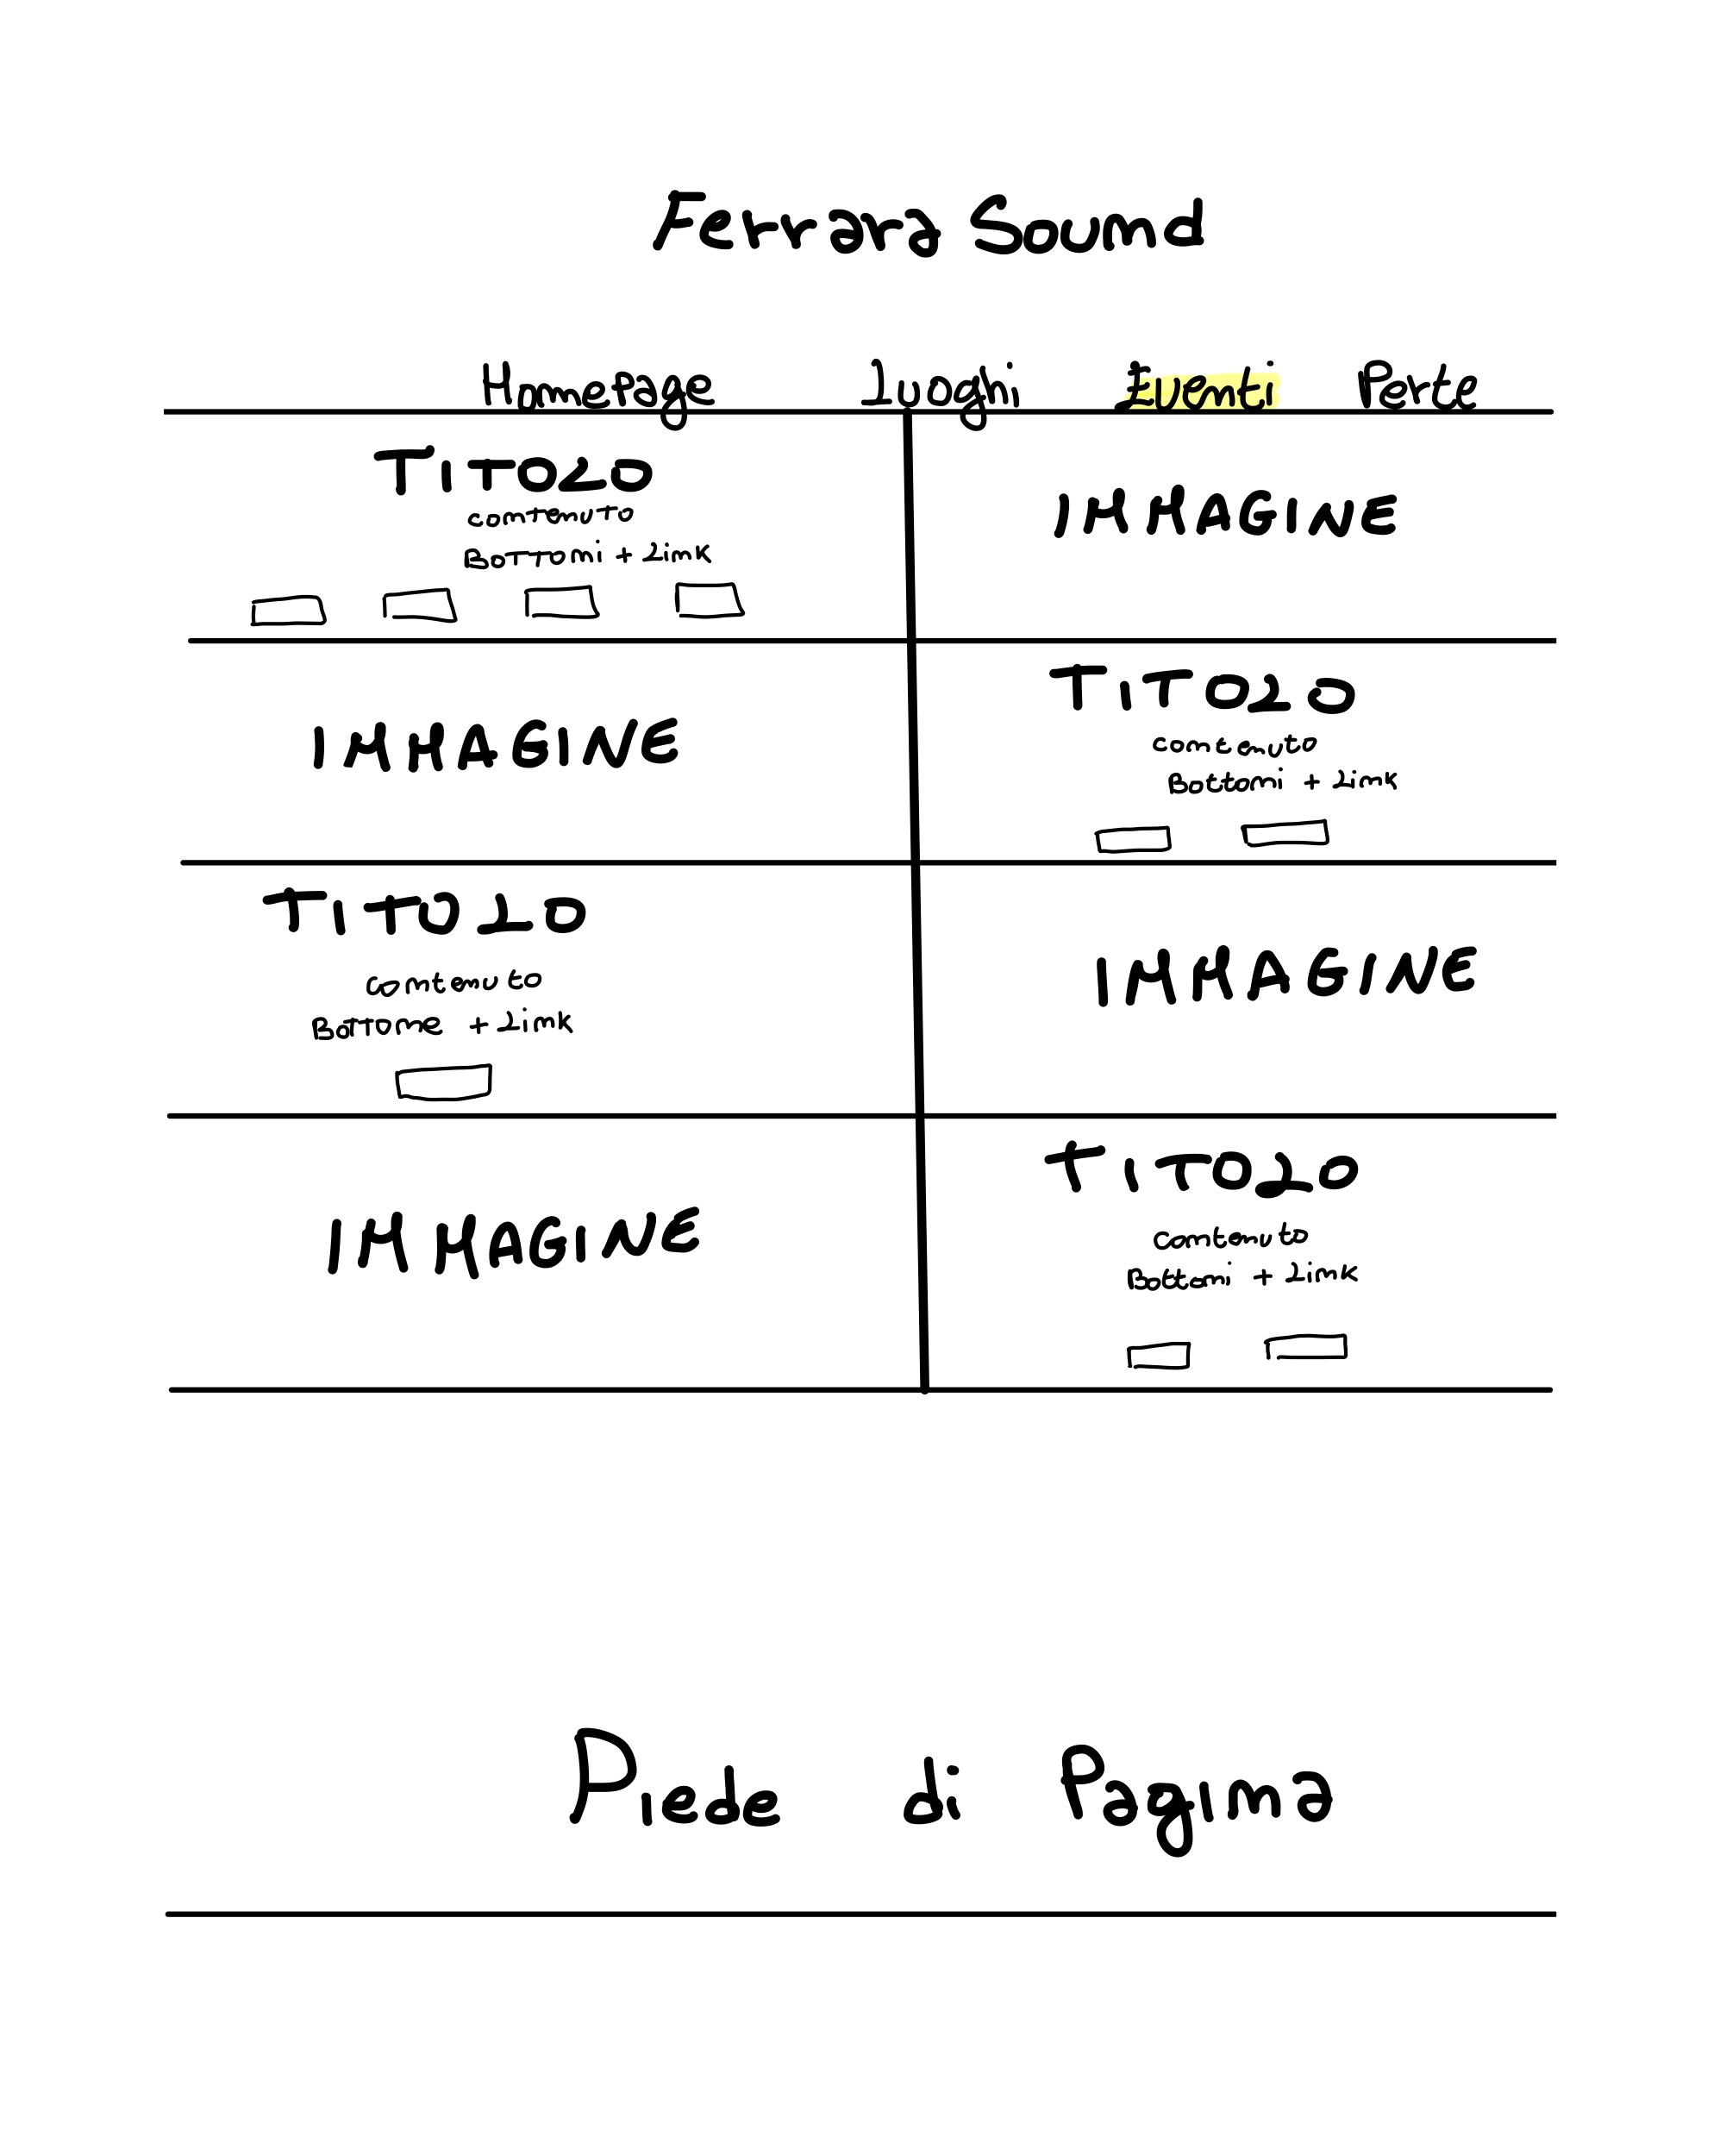 Ferrara Sound
Homepage Luoghi Eventi Perte
TITOLO
contenuto
Bottoni + Link
IMMAGINE
IMMAGINE
TITOLO
contenuto
Bottoni + Link
TITOLO
contenuto
Bottone + Link
IMMAGINE
IMMAGINE
TITOLO
contenuto
Bottoni + Link
Piede di Pagina